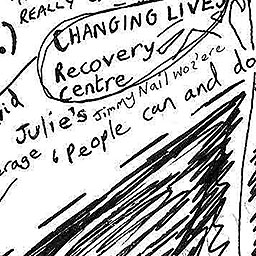 REALLY
CHANGING LIVES
Recovery
centre
Julie's Jimmy Nail woz 'ere
People can and do